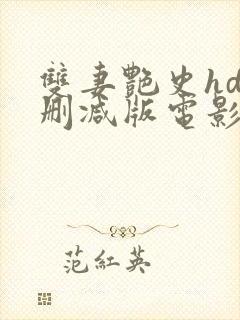 雙妻艷史hd
刪減版電影
范紅英